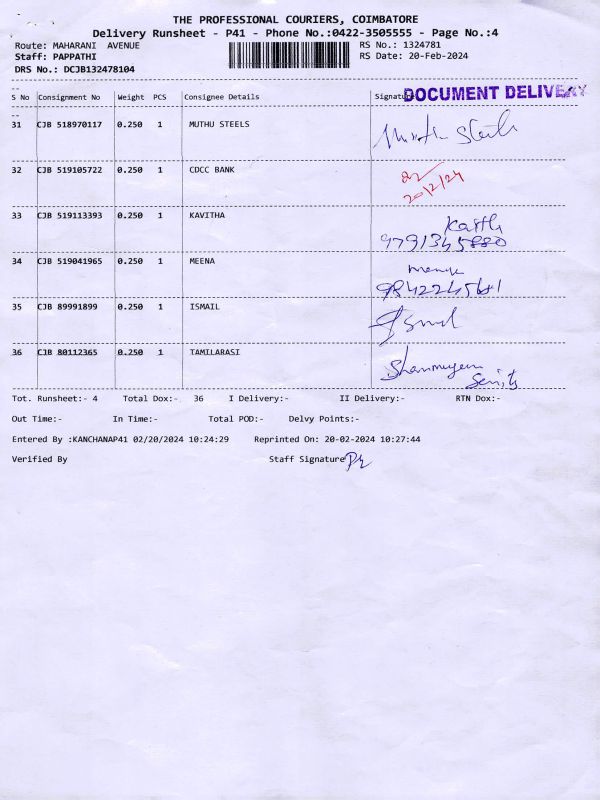 THE PROFESSIONAL COURIERS, COIMBATORE
Delivery Runsheet - P41 - Phone No.:0422-3505555 - Page No.:4
Route: MAHARANI AVENUE RS No.: 1324781
Staff: PAPPATHI RS Date: 20-Feb-2024
DRS No.: DCJB132478104
DOCUMENT DELIVERY
S No Consignment No Weight PCS Consignee Details Signature
31 CJB 518970117 0.250 1 MUTHU STEELS
32 CJB 519105722 0.250 1 CDCC BANK
20/2/24
33 CJB 519113393 0.250 1 KAVITHA
9791345880
34 CJB 519041965 0.250 1 MEENA
35 CJB 89991899 0.250 1 ISMAIL
36 CJB 80112365 0.250 1 TAMILARASI
Tot. Runsheet:- 4 Total Dox:- 36 I Delivery:- II Delivery:- RTN Dox:-
Out Time:- In Time:- Total POD:- Delvy Points:-
Entered By :KANCHANAP41 02/20/2024 10:24:29 Reprinted On: 20-02-2024 10:27:44
Verified By Staff Signature